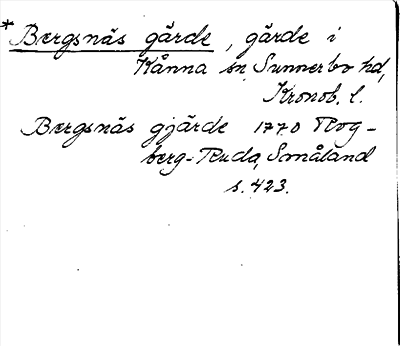 * Bergsnäs gärde, gärde i
Kånna sn, Sunnerbo hd,
Kronob. l.
Bergsnäs gjärde 1770 Rog-
berg-Ruda, Småland
s. 423.